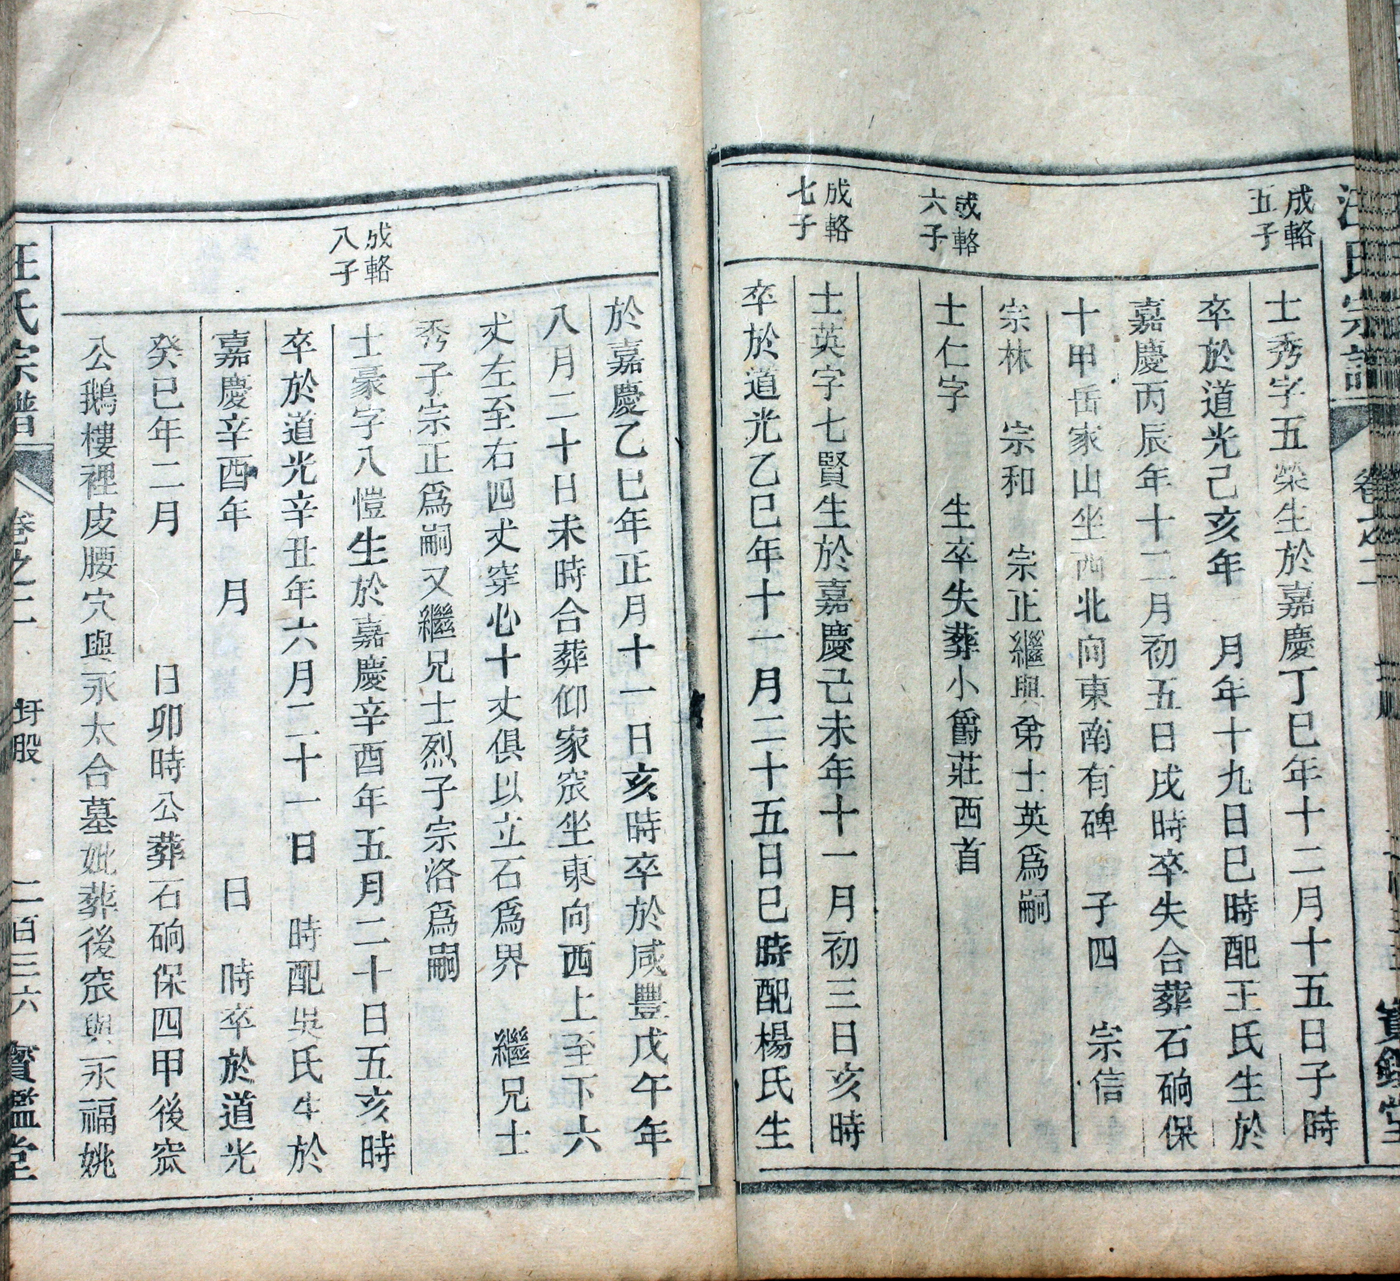 汪氏宗譜
卷之二
寶鑑堂
成輅
五子
士秀字五榮生於嘉慶丁巳年十二月十五日子時
卒於道光己亥年 月年十九日巳時配王氏生於
嘉慶丙辰年十二月初五日戌時卒失合葬石硐保
十甲岳家山坐西北向東南有碑 子四 宗信
宗林 宗和 宗正繼與弟士英爲嗣
成輅
六子
士仁字 生卒失葬小爵莊西首
成輅
七子
士英字七賢生於嘉慶己未年十一月初三日亥時
卒於道光乙巳年十一月二十五日巳時配楊氏生
於嘉慶乙巳年正月十一日亥時卒於咸豐戊午年
八月二十日未時合葬仰家窊坐東向西上至下六
丈左至右四丈穿心十丈俱以立石爲界 繼兄士
秀子宗正爲嗣又繼兄士烈子宗洛爲嗣
成輅
八子
士豪字八愷生於嘉慶辛酉年五月二十日五亥時
卒於道光辛丑年六月二十一日 時配吳氏生於
嘉慶辛酉年 月 日 時卒於道光
癸巳年二月 日卯時公葬石硐保四甲後窊
公鵝樓裡皮腰穴與永太合墓妣葬後窊與永福姚
汪氏宗譜
卷之二
玗股
二百三六
寶鑑堂